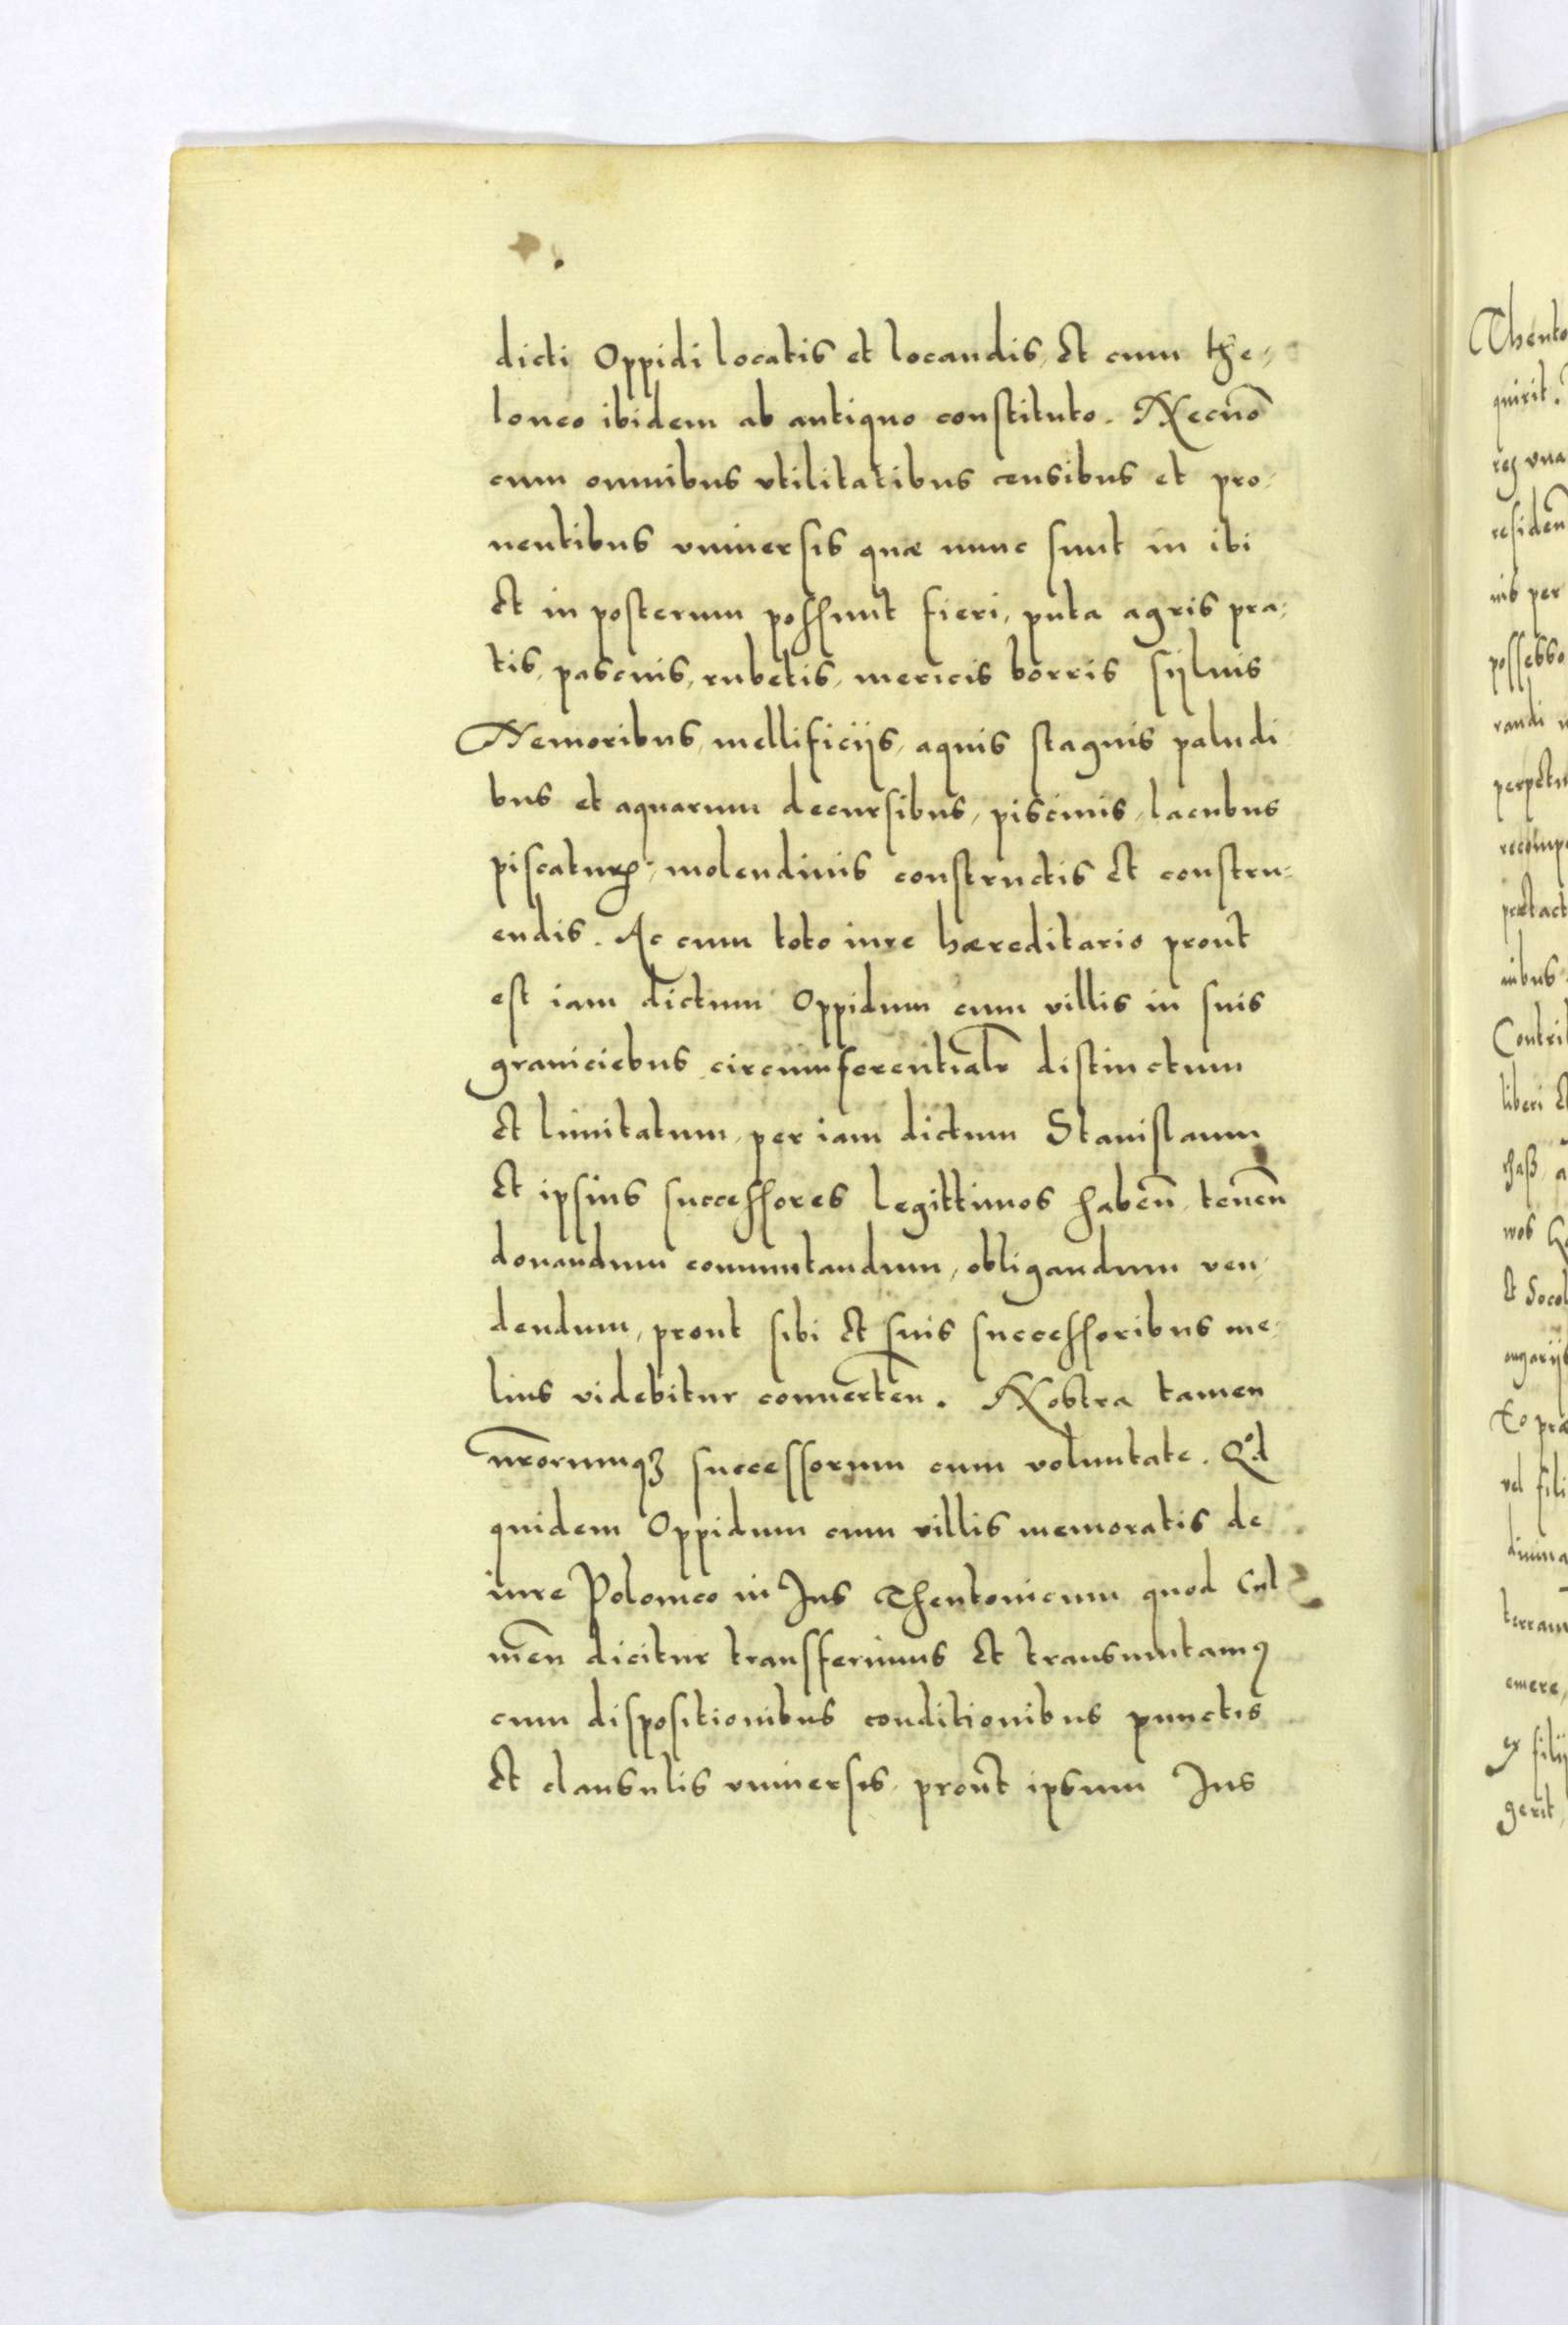 dicti Oppidi locatis et locandis, et cum the-
loneo ibidem ab antiquo constituto. Necnõ
cum omnibus vtilitatibus censibus et pro-
uentibus vniuersis quæ nunc sunt in ibi
et in posterum possunt fieri, puta agris pra-
tis, pascuis, rubetis, mericis borris sijluis
Nemoribus, mellificijs, aquis stagnis paludi
bus et aquarum decursibus, piscinis, lacubus
piscaturꝭ, molendinis constructis et constru-
endis. Ac cum toto iure hæreditario prout
est iam dictum Oppidum cum villis in suis
graniciebus circumferentialr̃ distinctum
et limitatum, per iam dictum Stanislaum
et ipsius successores legittimos habeñ, teneñ
donandum commutandum, obligandum ven-
dendum, prout sibi et suis successoribus me-
lius videbitur conuerteñ. Nostra tamen
nr̃orumqꝫ successorum cum voluntate. Qd
quidem Oppidum cum villis memoratis de
iure Polonico in Jus Theutonicum quod Cul
meñ dicitur transferimus et transmutamꝰ
cum dispositionibus conditionibus punctis
et clausulis vniuersis, prout ipsum Jus
Theuto
quirit.
vna
resideñ
nis per
possesso
randi
perpetu
recomp
prætact
nibus
Contri
liberi et
nos
et
angarij
Eo præ
vel fili
terram
emere,
ex filij
gerit,